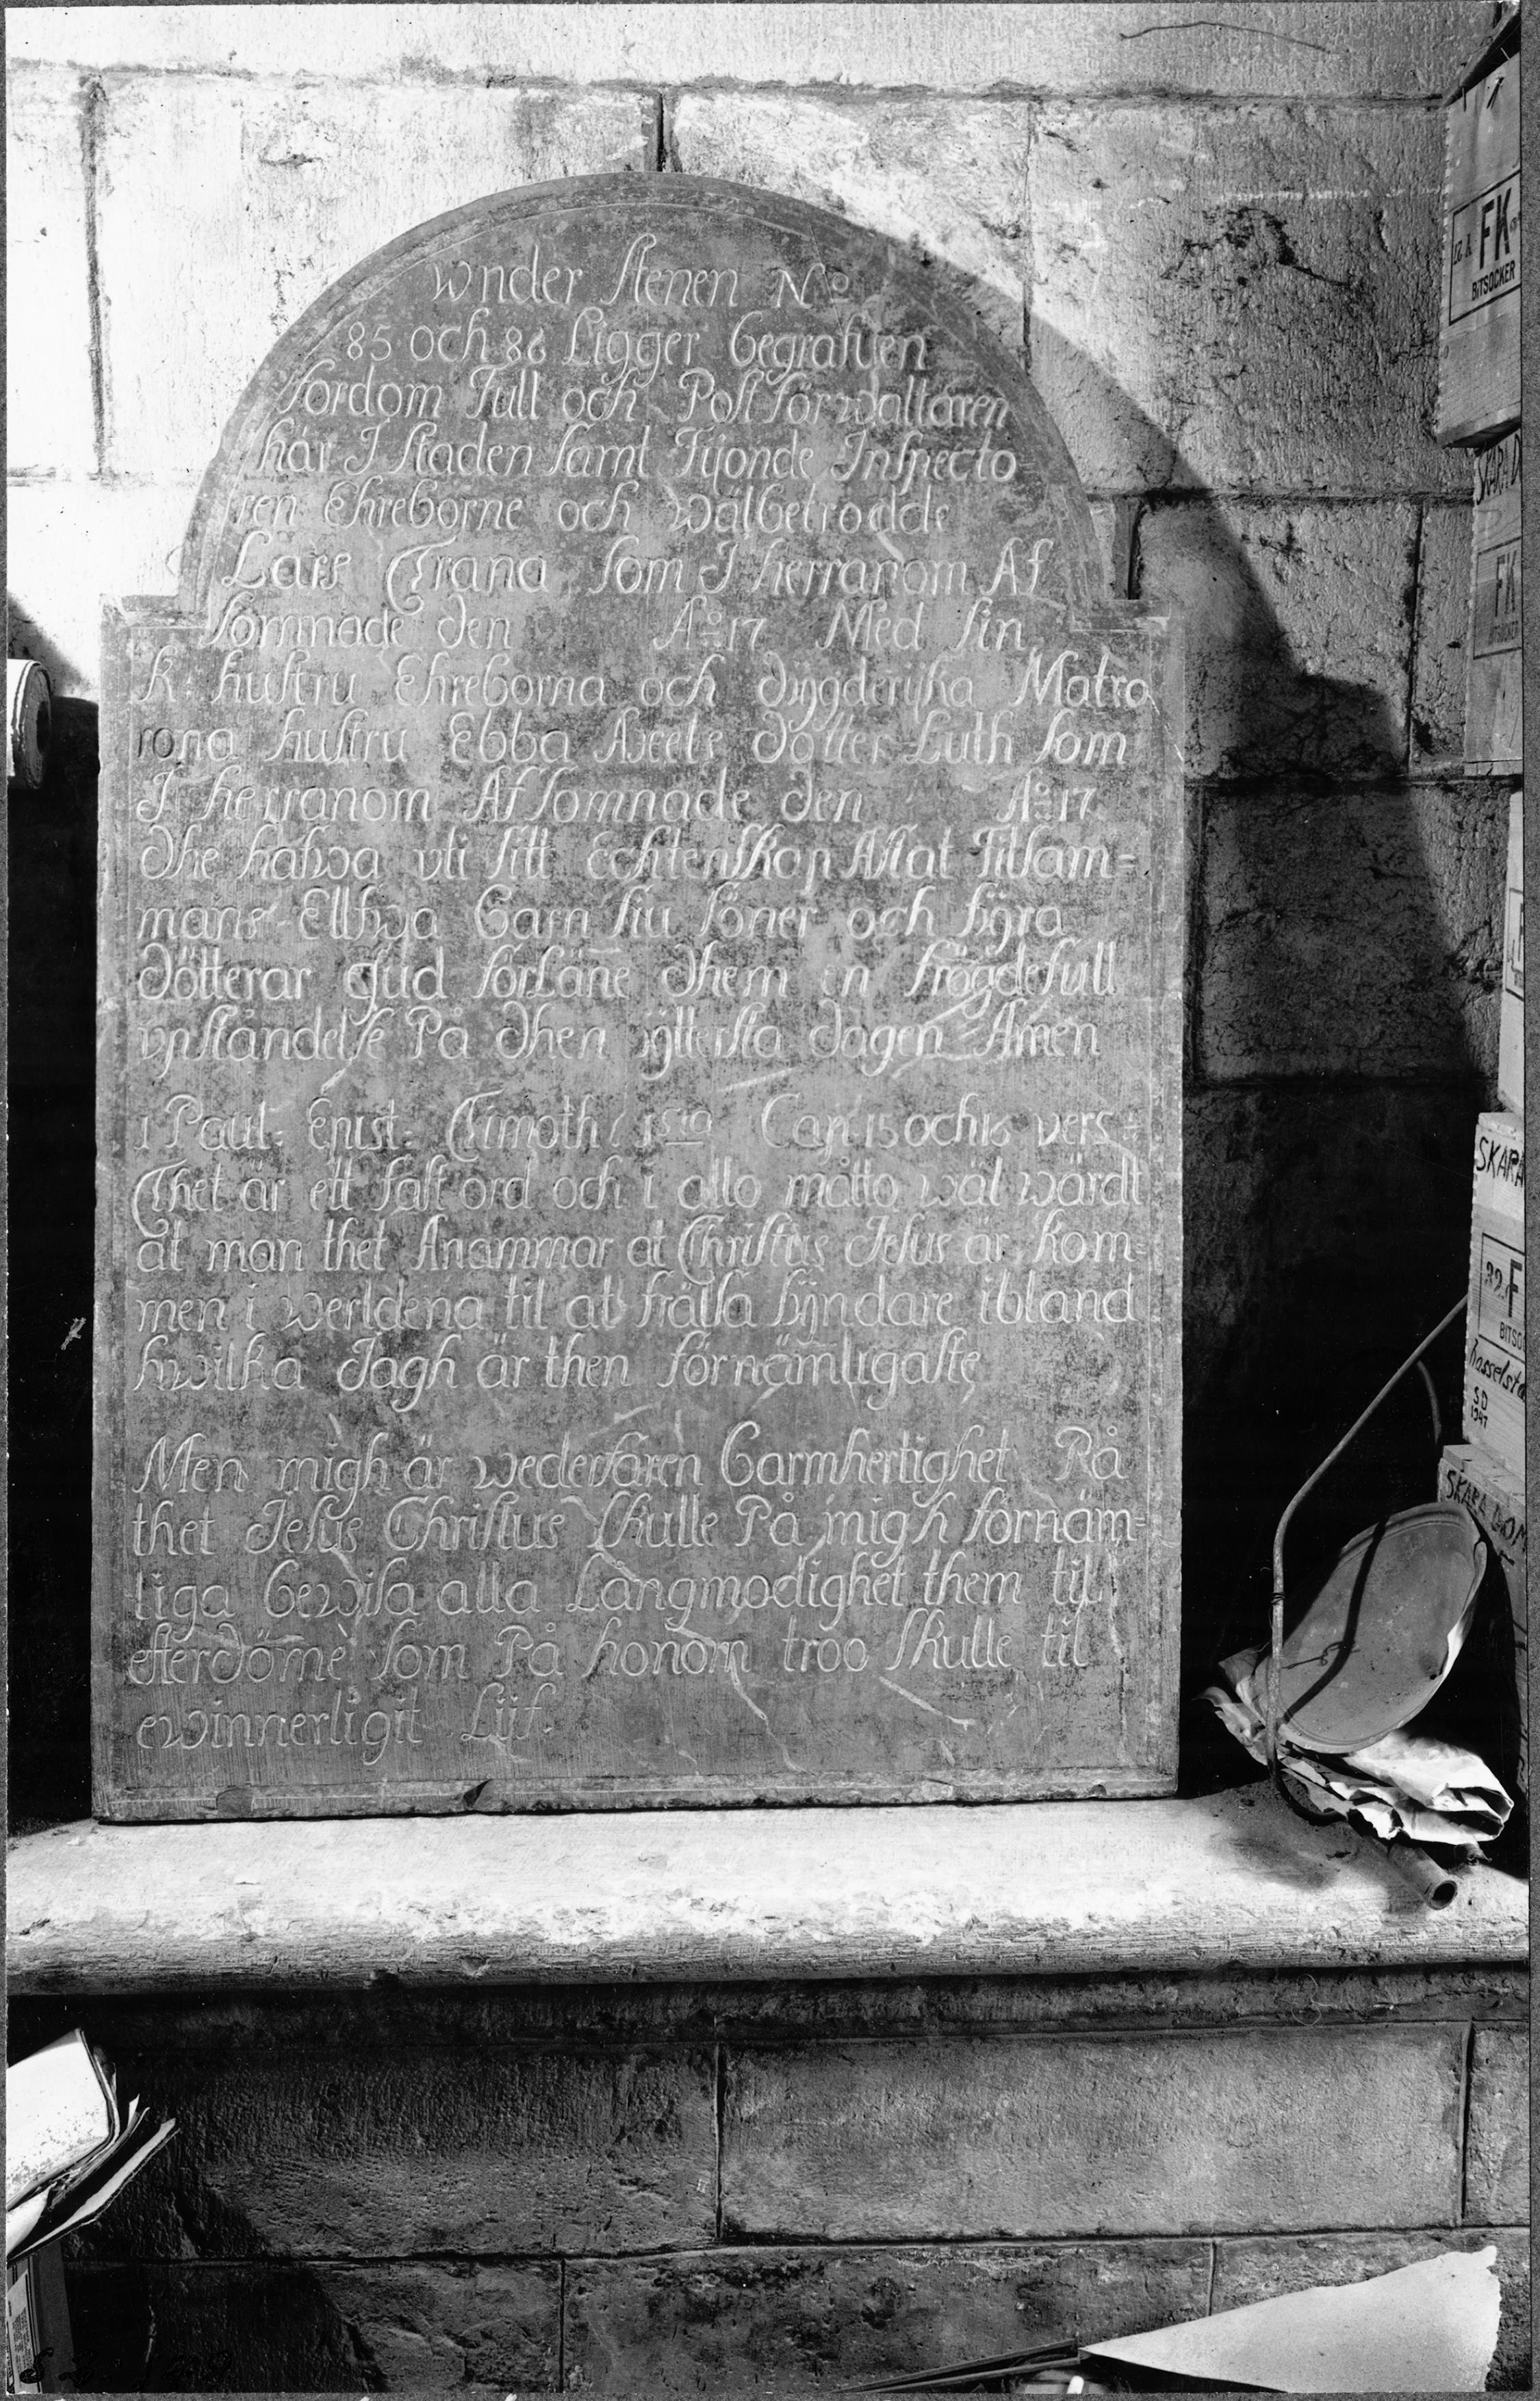 wnder stenen No
85 och 86 Ligger begrafven
fordom Tull och Post förwaltaren
här I staden samt Tijonde Inspecto
ren Ehreborne och wälbetrodde
Lars Trana som I herranom Af
somnade den Ao 17 Med sin
K: hustru Ehreborna och dÿgderijka Matro
rona hustru Ebba Axels dotter Luth som
I herranom Af somnade den Ao 17
dhe hafwa vti sitt Echtenskap Aflat Tilsam=
mans Ellfwa barn siu söner och fÿra
dötterar gud förLäne dhem en frögdefull
vpståndelse På dhen ÿttersta dagen Amen
1 Paul: Epist: Timoth: Cap: 15 och 16 vers:
Thet är ett fast ord och i allo måtto wäl wärdt
at man thet Anammar at Christus Jesus är Kom=
men i werldena til at frälsa sÿndare ibland
hwilka Jagh är then förnämligaste
Men migh är wederfaren barmhertighet På
thet Jesus Christus skulle På migh förnäm=
liga bewisa alla Långmodighet them til
efterdöme som På honom troo skulle til
ewinnerligit Lijf.
FK
BITSOCKER
SKARA D
FK
BITSOCKER
SKARA
32. F
BITSO
SD
1947
SKARA DOM